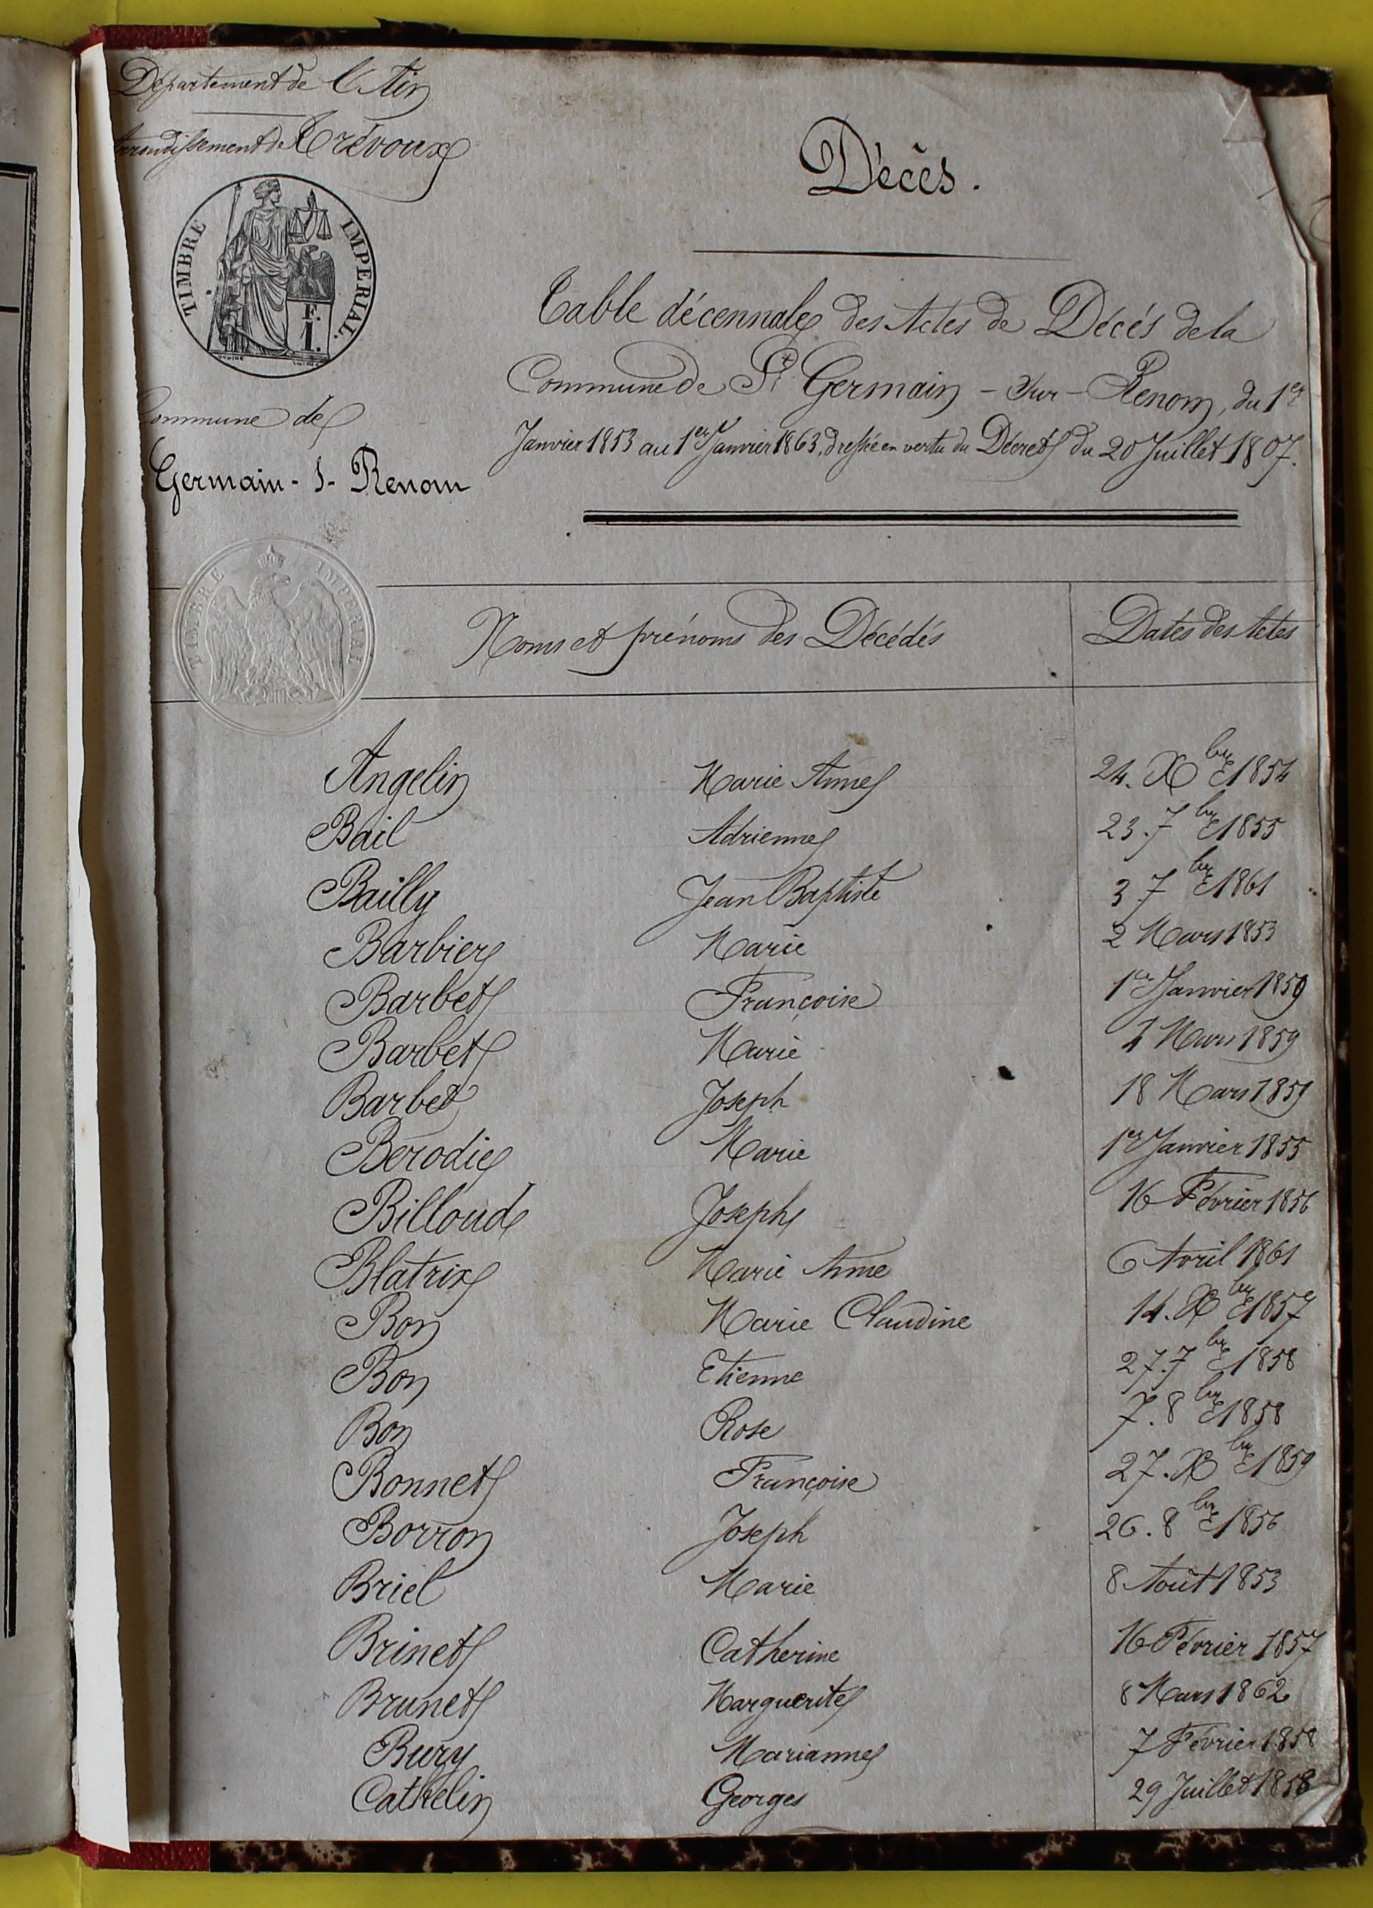 Département de l'Ain
Arrondissement de Trévoux
TIMBRE IMPERIAL.
F.
1.
Commune de
Germain-s-Renom
TIMBRE IMPERIAL
Décès.
Table décennale des Actes de Décés de la
Commune de St Germain - sur - Renom, du 1er
Janvier 1853 au 1er Janvier 1863, dressée en vertu du Décret du 20 Juillet 1807.
Noms et prénoms des Décédés Dates des Actes
Angelin Marie Anne 24. Xbre 1854
Bail Adrienne 23. 7bre 1855
Bailly Jean Baptiste 3. 7bre 1861
Barbier Marie 2 Mars 1853
Barbet Françoise 1er Janvier 1859
Barbet Marie 2 Mars 1859
Barbet Joseph 18 Mars 1859
Berodie Marie 1er Janvier 1855
Billoud Joseph 16 Février 1856
Blatrix Marie Anne 6 Avril 1861
Bon Marie Claudine 14. Xbre 1857
Bon Etienne 27. 7bre 1858
Bon Rose 7. 8bre 1858
Bonnet Françoise 27. Xbre 1859
Borron Joseph 26. 8bre 1856
Briel Marie 8 Août 1853
Brinet Catherine 16 Février 1857
Brunet Marguerite 8 Mars 1862
Bury Marianne 7 Février 1858
Cathelin Georges 29 Juillet 1858